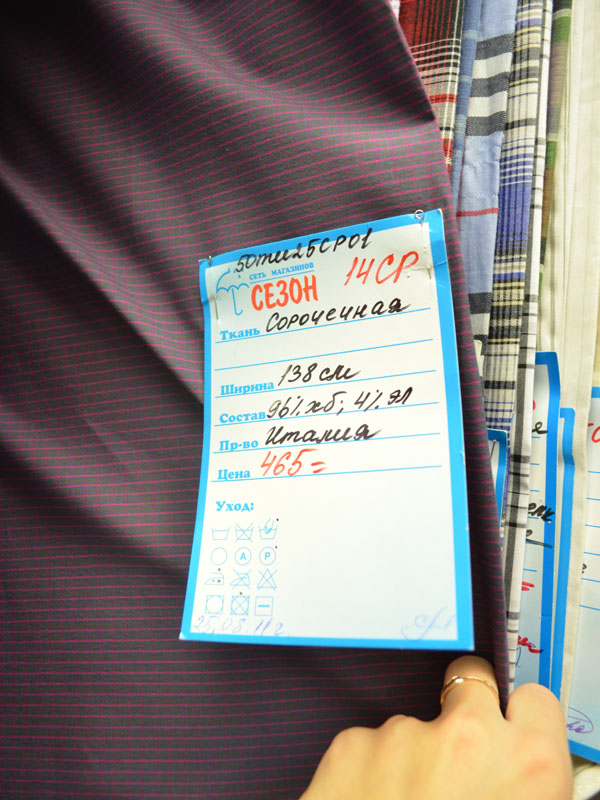 50ТИ25СР01
СЕТЬ МАГАЗИНОВ
СЕЗОН 14СР.
Ткань Сорочечная
Ширина 138см
Состав 96% хб; 4% эл
Пр-во Италия
Цена 465=
Уход:
A P
25.08.11г.